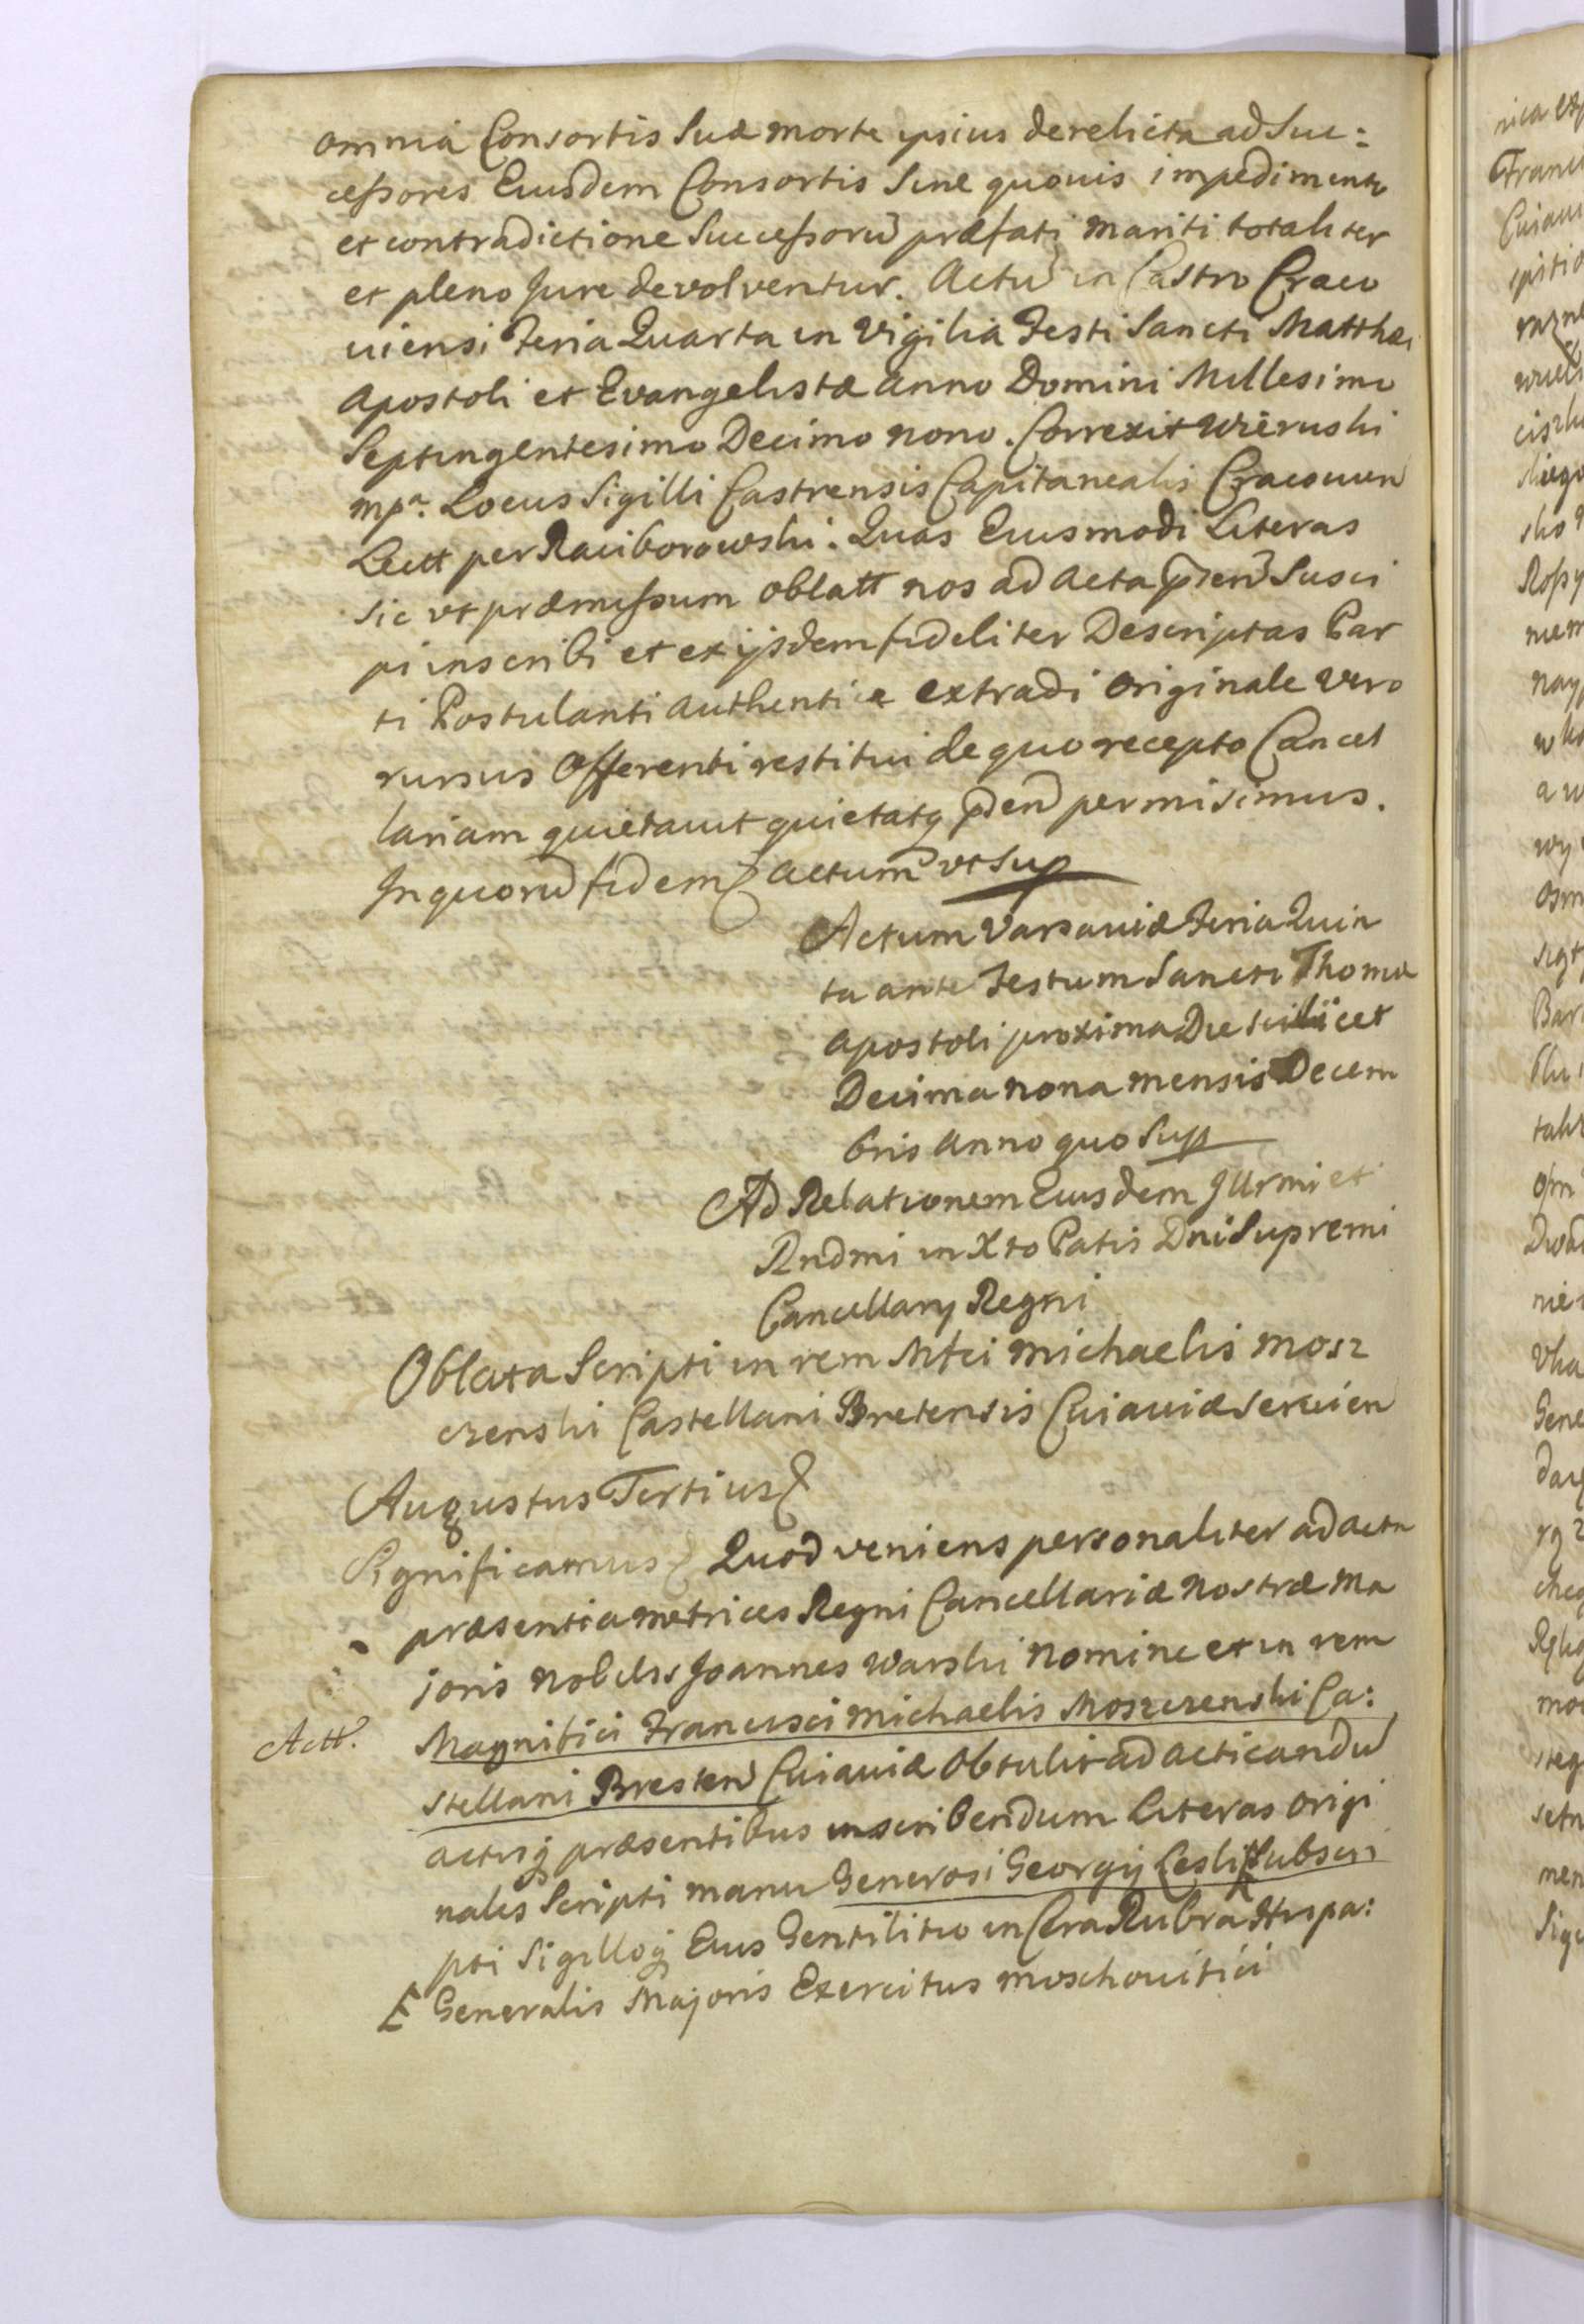 omnia Consortis Suæ morte ipsius derelicta ad Suc:
cessores Eiusdem Consortis Sine quouis impedimento
et contradictione Successorũ præfati mariti totaliter
et pleno Jure devolventur. Actũ in Castro Craco
uiensi Feria Quarta in Vigilia Festi Sancti Matthæi
Apostoli et Evangelistæ Anno Domini Millesimo
Septingentesimo Decimo nono. Correxit Wierushi
mpa. Locus Sigilli Castrensis Capitanealis Cracouien
Lectt per Raciborowski. Quas Eiusmodi Literas
sic vt præmissum oblatt nos ad Acta pñten Susci
pi inscribi et ex ijsdem fideliter Descriptas Par
ti Postulanti Authentice extradi Originale vero
rursus Offerenti restitui de quo recepto Cancel
lariam quietauit quietatq pñten permisimus.
In quorũ fidem Actum vt Sup
Actum Varsaviæ Feria Quin
ta ante Festum Sancti Thomæ
Apostoli proxima Die scilicet
Decima nona mensis Decem
bris Anno quo Sup
Ad Relationem Eiusdem Jllrmi et
Rndmi in Xto Patis Dni Supremi
Cancellary Regni
Oblata Scripti in rem Mfci Michaelis Mosz
czenski Castellani Bretensis Cuiaviæ servien
Augustus Tertius
Significamus Quod veniens personaliter ad Acta
præsentia metrices Regni Cancellariæ Nostræ Ma
joris Nobilis Joannes Warski Nomine et in rem
Actt. Magnifici Francisci Michaelis Moszczenski Ca:
stellani Bresten Cuiaviæ Obtulit ad Acticandũ
actisq præsentibus inscribendum Literas Origi
nales Scripti manu Generosi Georgij Lesli Subscri
pti Sigilloq Eius Gentilitio in Cera Rubra Hispa:
E Generalis Majoris Exercitus Moschouitici